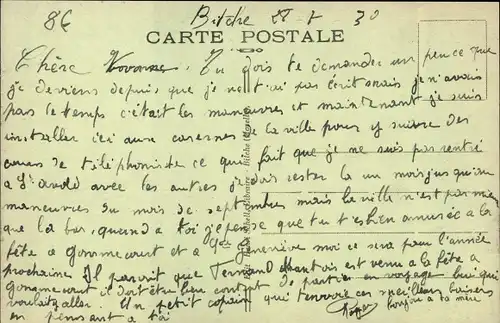 86
Bitche 28-7 30
CARTE POSTALE
Chère Yvonne. Tu dois te demander un peu ce que
je deviens depuis que je ne t'ai pas écrit mais je n'avais
pas le temps c'était les manœuvres et maintenant je suis
installer ici aux casernes de la ville pour y suivre des
cours de téléphoniste ce qui fait que je ne suis pas rentré
a St avold avec les autres je dois rester la un mois jusqu'au
manœuvres du mois de septembre mais la ville n'est pas mieux
que la bas, quand a toi je pense que tu t'es bien amusée a la
fête a Gommecourt et a Ste Geneviève moi ce sera pour l'année
prochaine. Il parait que Fernand est venu a la fête a
Gommecourt il doit être bien content de partir en voyage lui qui
voulait aller. Un petit copain qui t'envoie ces meilleurs baisers
en pensant a toi
bonjour a ta mère